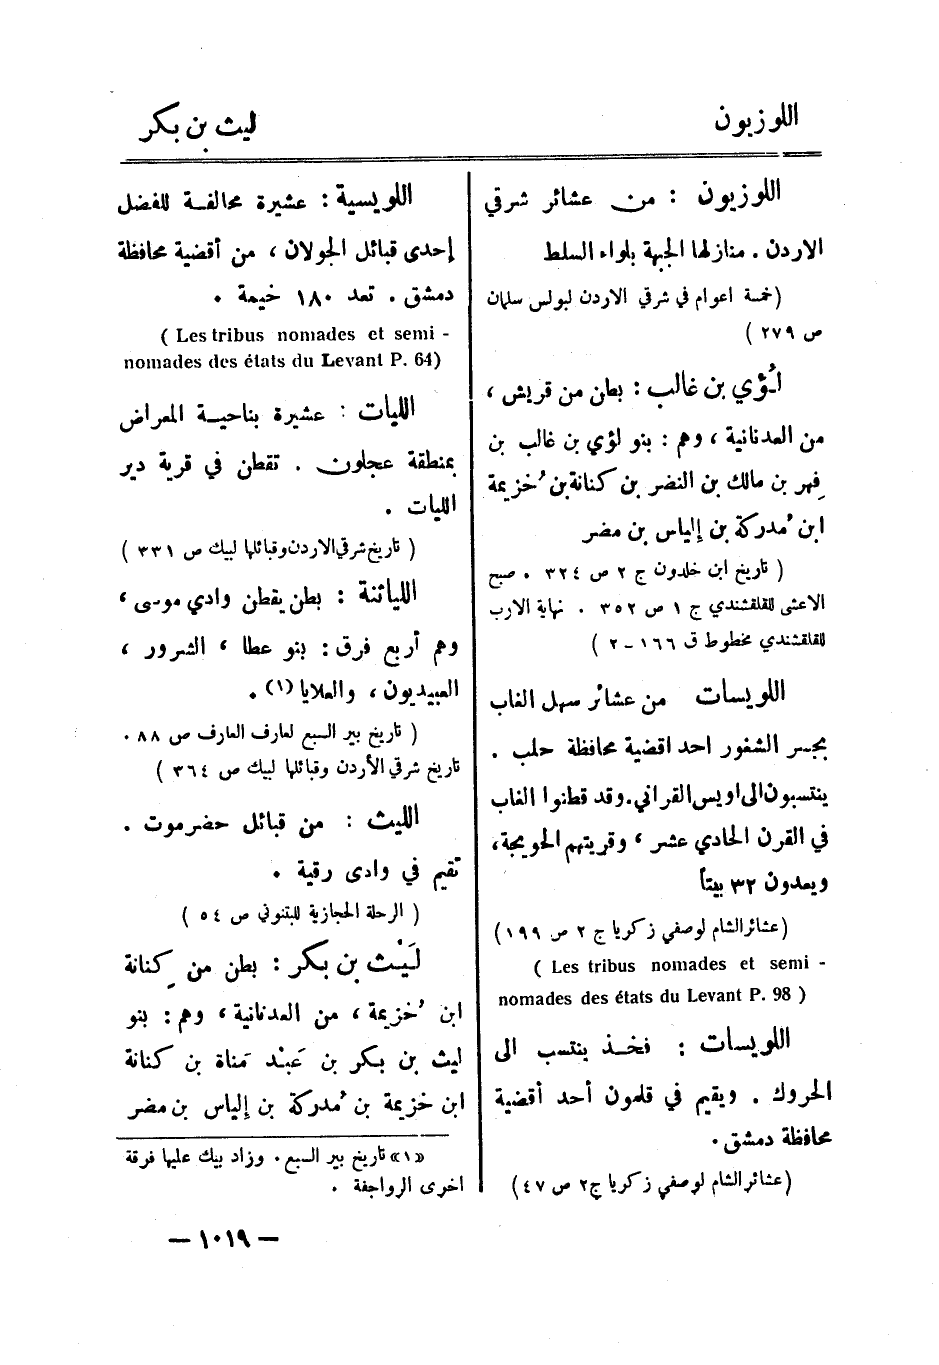 اللوزيون
ليث بن بكر
اللوزيون : من عشائر شرقي
الاردن . منازلها الجبهة بلواء السلط
(خمسة اعوام في شرقي الاردن لبولس سلمان
ص ٢٧٩ )
لُؤي بن غالب : بطن من قريش ،
من العدنانية ، وهم : بنو لؤي بن غالب بن
فِهر بن مالك بن النضر بن كنانة بن خُزيمة
ابن مُدركة بن إلياس بن مضر
( تاريخ ابن خلدون ج ٢ ص ٣٢٤ . صبح
الاعشى للقلقشندي ج ١ ص ٣٥٢ . نهاية الارب
للقلقشندي مخطوط ق ١٦٦ - ٢ )
اللويسات من عشائر سهل الغاب
بجسر الشغور احد اقضية محافظة حلب .
ينتسبون الى اويس القراني . وقد قطنوا الغاب
في القرن الحادي عشر ، وقريتهم الحويجة ،
ويعدون ٣٢ بيتاً
(عشائر الشام لوصفي زكريا ج ٢ ص ١٩٩)
( Les tribus nomades et semi -
nomades des états du Levant P. 98 )
اللويسات : فخذ ينتسب الى
الحروك . ويقيم في قلمون أحد أقضية
محافظة دمشق .
(عشائر الشام لوصفي زكريا ج٢ ص ٤٧)
اللويسية : عشيرة محالفة للفضل
إحدى قبائل الجولان ، من أقضية محافظة
دمشق . تعد ١٨٠ خيمة .
( Les tribus nomades et semi -
nomades des états du Levant P. 64)
الليات : عشيرة بناحية المعراض
بمنطقة عجلون . تقطن في قرية دير
الليات .
( تاريخ شرقي الاردن وقبائلها لبيك ص ٣٣١ )
الليائنة : بطن يقطن وادي موسى ،
وهم أربع فرق : بنو عطا ، الشرور ،
العبيديون ، والعلايا (١) .
( تاريخ بير السبع لعارف العارف ص ٨٨ .
تاريخ شرقي الأردن وقبائلها لبيك ص ٣٦٤ )
الليث : من قبائل حضرموت .
تقيم في وادى رقية .
( الرحلة الحجازية للبتنوني ص ٥٤ )
لَيْث بن بكر : بطن من كِنانة
ابن خُزيمة ، من العدنانية ، وهم : بنو
ليث بن بكر بن عَبْد مَناة بن كنانة
ابن خزيمة بن مُدركة بن إلياس بن مضر
«١» تاريخ بير السبع . وزاد بيك عليها فرقة
اخرى الرواجفة .
— ١٠١٩ —